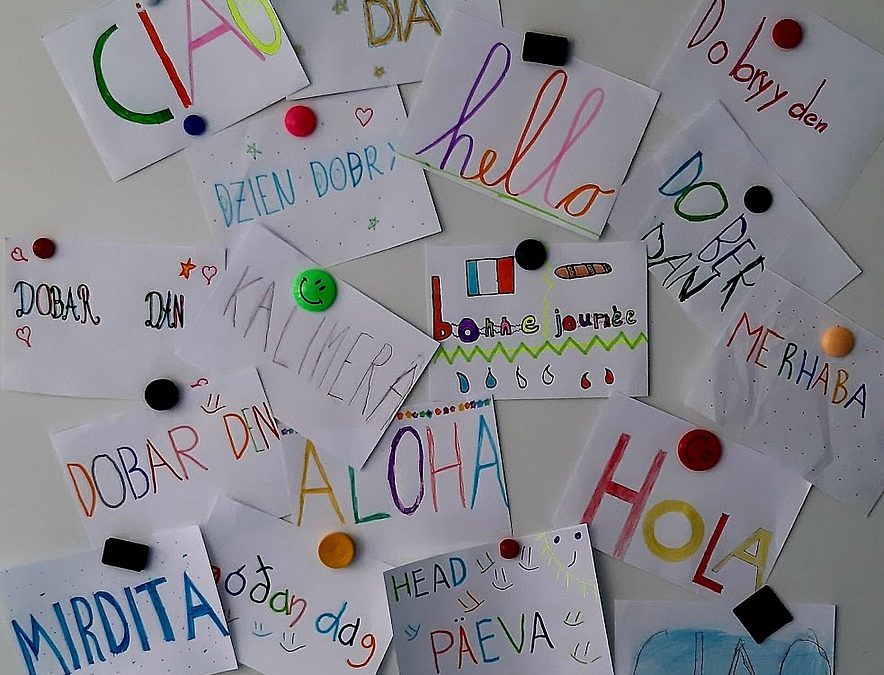 CIAO
DIA
hello
Dobryy den
DZIEN DOBRY
DOBER
DAN
DOBAR DAN
KALIMERA
bonne journée
MERHABA
DOBAR DEN
ALOHA
HOLA
MIRDITA
Goðan dag
HEAD
PÄEVA
CIAO